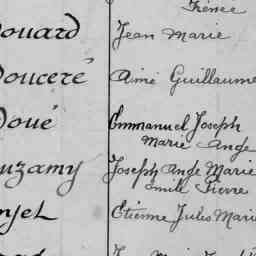 Irénée
ouard Jean Marie
ouceré Aimé Guillaume
oué Emmanuel Joseph
Marie Ange
uzamy Joseph Ange Marie
Emile Pierre
njel Etienne Jules Marie